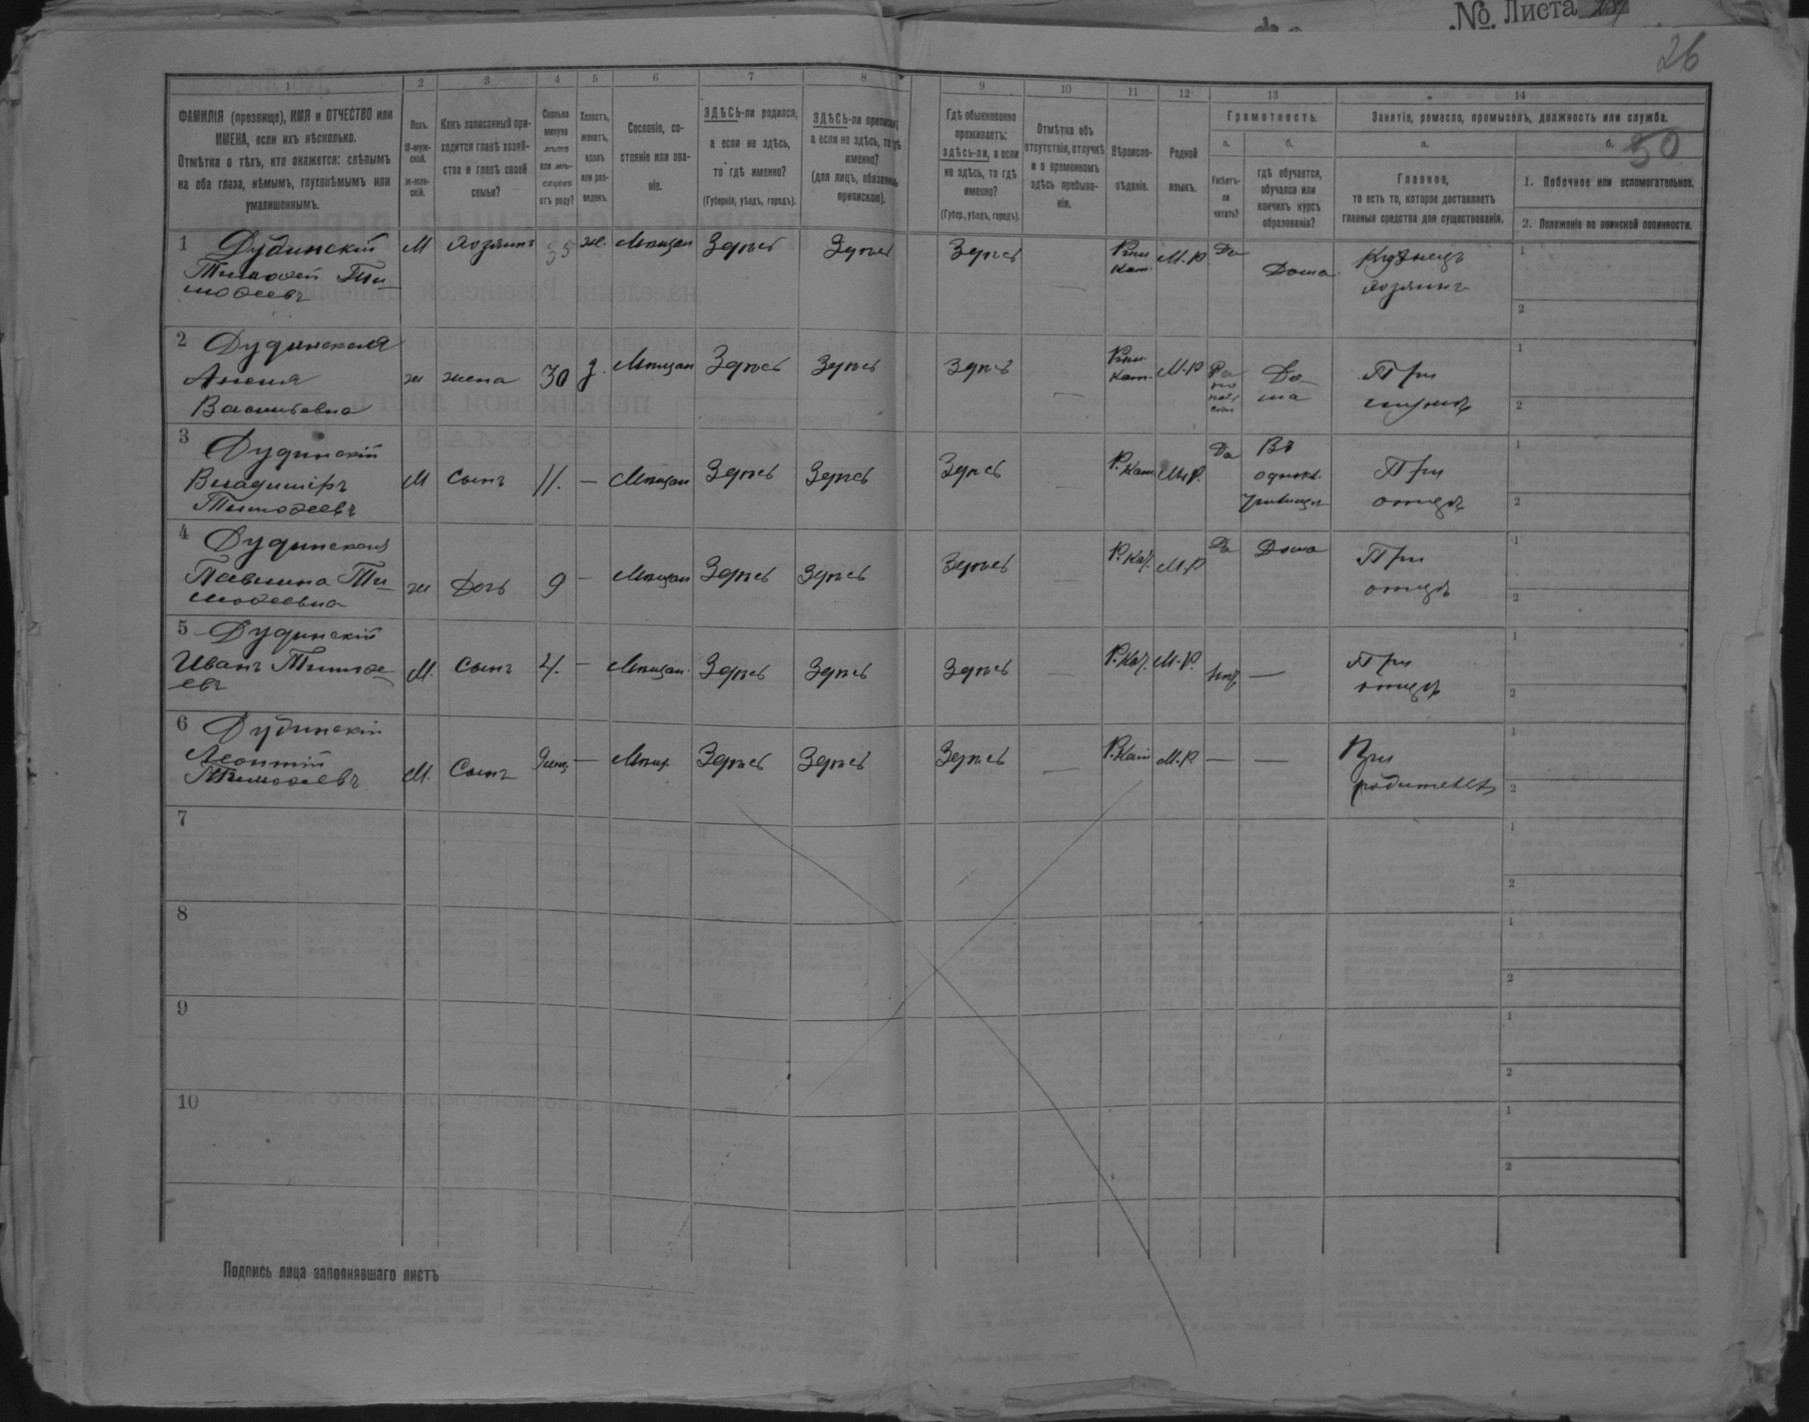 № Листа
26
1
2
3
4
5
6
7
8
9
10
11
12
13
14
ФАМИЛІЯ (прозвище), ИМЯ и ОТЧЕСТВО или
ИМЕНА, если ихъ нѣсколько.
Отмѣтка о тѣхъ, кто окажется: слѣпымъ
на оба глаза, нѣмымъ, глухонѣмымъ или
умалишеннымъ.
Полъ.
М-муж-
ской.
Ж-жен-
скій.
Какъ записанный при-
ходится главѣ хозяй-
ства и главѣ своей
семьи?
Сколько
минуло
лѣтъ
или мѣ-
сяцевъ
отъ роду?
Холостъ,
женатъ,
вдовъ
или раз-
веденъ.
Сословіе, со-
стояніе или зва-
ніе.
ЗДѢСЬ-ли родился,
а если не здѣсь,
то гдѣ именно?
(Губернія, уѣздъ, городъ).
ЗДѢСЬ-ли приписанъ,
а если не здѣсь, то гдѣ
именно?
(для лицъ, обязанныхъ
припискою).
Гдѣ обыкновенно
проживаетъ:
здѣсь-ли, а если
не здѣсь, то гдѣ
именно?
(Губер., уѣздъ, городъ).
Отмѣтка объ
отсутствіи, отлучкѣ
и о временномъ
здѣсь пребыва-
ніи.
Вѣроиспо-
вѣданіе.
Родной
языкъ.
Грамотность.
а.
Умѣетъ-
ли
читать?
б.
гдѣ обучается,
обучался или
кончилъ курсъ
образованія?
Занятіе, ремесло, промыселъ, должность или служба.
а.
Главное,
то есть то, которое доставляетъ
главныя средства для существованія.
б.
50
1. Побочное или вспомогательное.
2. Положеніе по воинской повинности.
1 Дудинскій
Тимофей Ти-
мофеевъ
М
хозяинъ
35
ж.
Мѣщан
Здѣсь
Здѣсь
Здѣсь
Рим
Кат.
М.Р
Да
Дома
Кузнецъ
хозяинъ
1
2
2 Дудинская
Васильевна
ж
жена
30
З.
Мѣщан
Здѣсь
Здѣсь
Здѣсь
Рим.
Кат.
М.Р
До-
ма
При
мужѣ
1
2
3 Дудинскій
Владиміръ
Тимофеевъ
М
Сынъ
11.
—
Мѣщан
Здѣсь
Здѣсь
Здѣсь
Р. Кат.
М.Р.
Да
Въ
училищѣ
При
отцѣ
1
2
4 Дудинская
Павлина Ти-
мофеевна
ж
Дочь
9
—
Мѣщан
Здѣсь
Здѣсь
Здѣсь
Р. Кат.
М.Р
Да
Дома
При
отцѣ
1
2
5 Дудинскій
Иванъ Тимофе-
евъ
М.
Сынъ
4.
—
Мѣщан.
Здѣсь
Здѣсь
Здѣсь
Р. Кат.
М.Р.
Нѣт
—
При
отцѣ
1
2
6 Дудинскій
Леонтій
Тимофеевъ
М.
Сынъ
9 мѣс
—
Мѣщ.
Здѣсь
Здѣсь
Здѣсь
Р. Кат
М.Р
—
—
При
родителѣ
1
2
7
1
2
8
1
2
9
1
2
10
1
2
Подпись лица заполнявшаго листъ